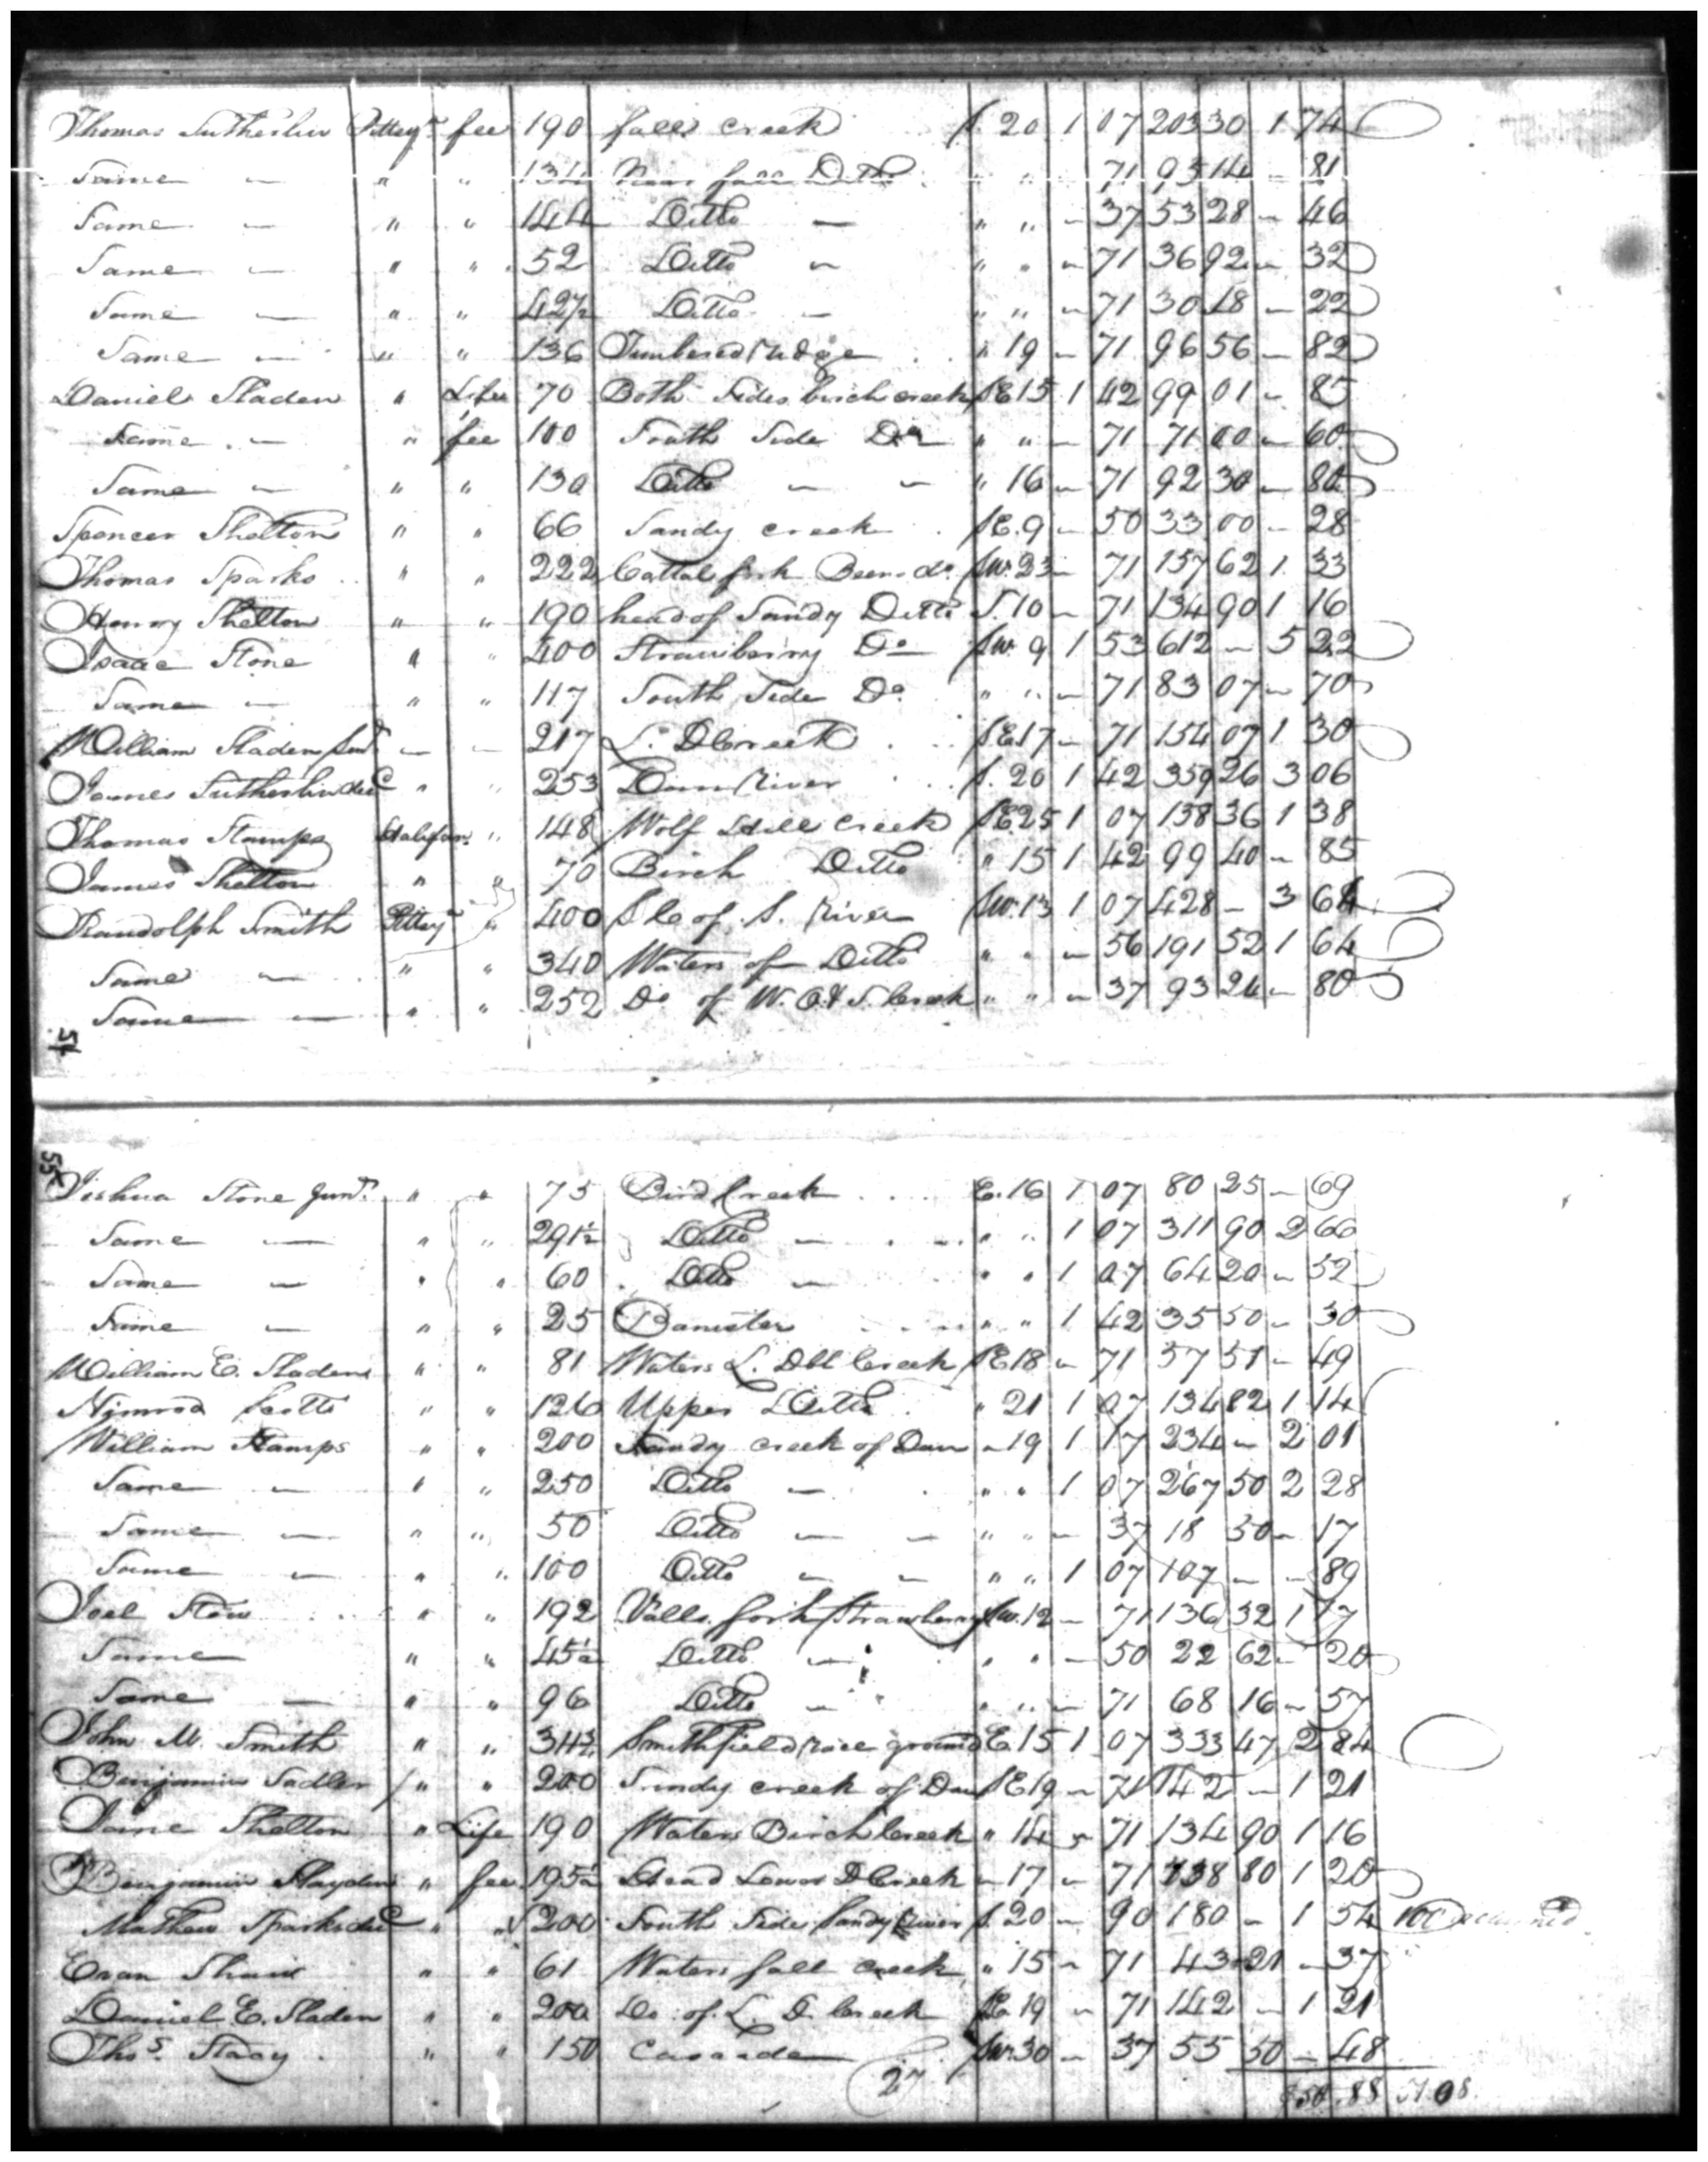 Thomas Sutherlin Pittsya fee 190 falls creek S. 20 1 07 203 30 1 74
Same — " " 134 Near falls Ditto " " 71 95 14 — 81
Same — " " 144 Ditto — " " — 37 53 28 — 46
Same — " " 52 Ditto — " " — 71 36 92 — 32
Same — " " 42½ Ditto — " " — 71 30 18 — 22
Same — " " 136 Timbered Ridge " 19 — 71 96 56 — 82
Daniel Sladen " Life 70 Both Sides birch creek SE 15 1 42 99 01 — 85
Same — " fee 100 South Side Do " " — 71 71 00 — 60
Same — " " 130 Ditto — — " 16 — 71 92 30 — 80
Spencer Shelton " " 66 Sandy creek SE. 9 — 50 33 00 — 28
Thomas Sparks " " 222 Cattail fork Do SW. 23 — 71 157 62 1 33
Henry Shelton " " 190 head of Sandy Ditto S. 10 — 71 134 90 1 16
Isaac Stone " " 400 Strawberry Do SW. 9 1 53 612 — 5 22
Same — " " 117 South Side Do " " — 71 83 07 — 70
William Sladen Senr — — 217 L. D Creek SE 17 — 71 154 07 1 30
James Sutherlin decd " " 253 Dan River S. 20 1 42 359 26 3 06
Thomas Stamps Halifax " 148 Wolf Hill Creek SE 25 1 07 158 36 1 38
James Shelton " " 70 Birch Ditto " 15 1 42 99 40 — 85
Randolph Smith Pittsya " 400 S. River SW. 13 1 07 428 — 3 64
Same — " " 340 Waters of Ditto " " — 56 191 52 1 64
Same — " " 252 Do of W. O. & S. Creek " " — 37 93 24 — 80
54
55
Joshua Stone Junr. " " 75 Bird Creek E. 16 1 07 80 25 — 69
Same — " " 291½ Ditto — " " 1 07 311 90 2 66
Same — " " 60 Ditto — " " 1 07 64 20 — 52
Same — " " 25 Banister " " 1 42 35 50 — 30
William E. Sladen " " 81 Waters L. Dbl Creek SE 18 — 71 57 51 — 49
Nimrod Scotts " " 126 Upper Ditto " 21 1 07 134 82 1 14
William Stamps " " 200 Sandy creek of Dan — 19 1 17 234 — 2 01
Same — " " 250 Ditto — " " 1 07 267 50 2 28
Same — " " 50 Ditto — — " " — 37 18 50 — 17
Same — " " 100 Ditto — — " " 1 07 107 — — 89
Joel Stow " " 192 Valls fork Strawberry SW. 12 — 71 136 32 1 17
Same " " 45½ Ditto — " " — 50 22 62 — 20
Same — " " 96 Ditto — " " — 71 68 16 — 57
John M. Smith " " 311¾ Smithfield race ground E. 15 1 07 333 47 2 84
Benjamin Sadler " " 200 Sandy creek of Dan SE 19 — 71 142 — 1 21
Jane Shelton " Life 190 Waters Birch Creek " 14 — 71 134 90 1 16
Benjamin Slayden " fee 195½ Head Lower D Creek — 17 — 71 138 80 1 20
Mathew Sparks decd " " 200 South Side Sandy River S. 20 — 90 180 — 1 54
Evan Shaw " " 61 Waters fall creek " 15 — 71 43 21 — 37
Daniel E. Sladen " " 200 Do of L. D. Creek SE 19 — 71 142 — 1 21
Thos. Stacy " " 150 Cascade SW 30 — 37 55 50 — 48
27